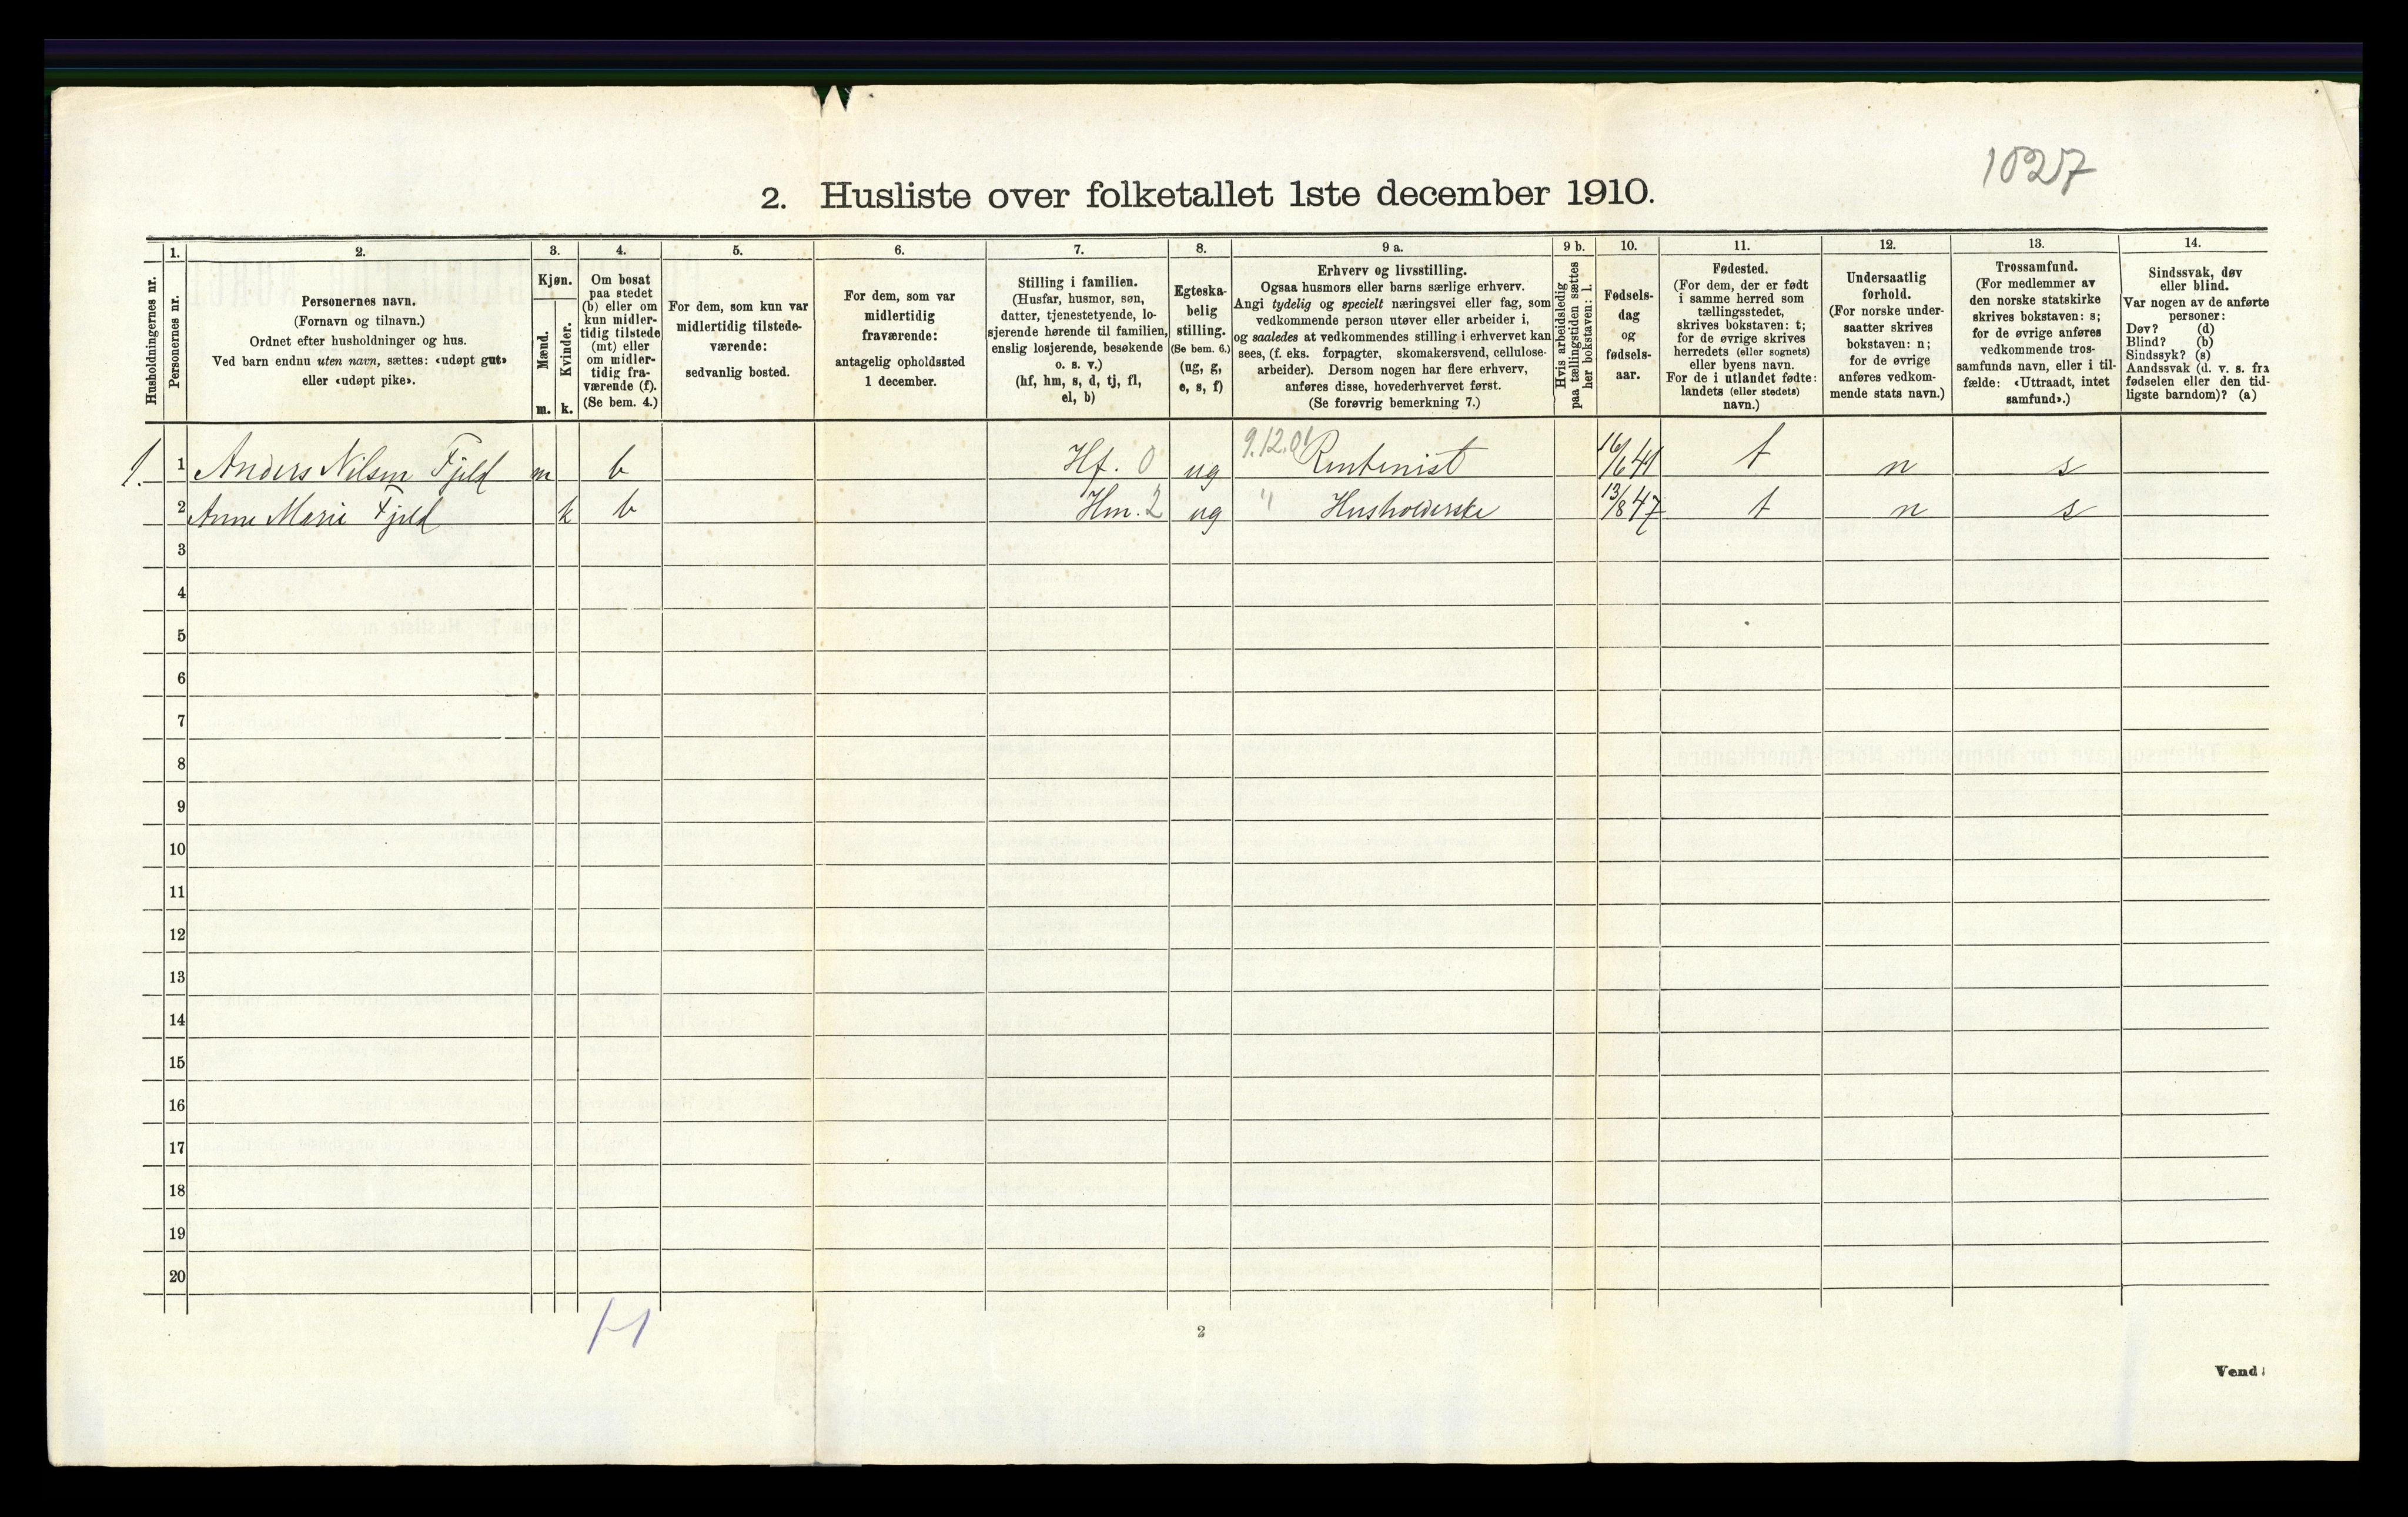 1027
2. Husliste over folketallet 1ste december 1910.
Husholdningernes nr.
1.
Personernes nr.
2.
Personernes navn.
(Fornavn og tilnavn.)
Ordnet efter husholdninger og hus.
Ved barn endnu uten navn, sættes: «udøpt gut»
eller «udøpt pike».
3.
Kjøn.
Mænd.
m.
Kvinder.
k.
4.
Om bosat
paa stedet
(b) eller om
kun midler-
tidig tilstede
(mt) eller
om midler-
tidig fra-
værende (f).
(Se bem. 4.)
5.
For dem, som kun var
midlertidig tilstede-
værende:
sedvanlig bosted.
6.
For dem, som var
midlertidig
fraværende:
antagelig opholdssted
1 december.
7.
Stilling i familien.
(Husfar, husmor, søn,
datter, tjenestetyende, lo-
sjerende hørende til familien,
enslig losjerende, besøkende
o. s. v.)
(hf, hm, s, d, tj, fl,
el, b)
8.
Egteska-
belig
stilling.
(Se bem. 6.)
(ug, g,
e, s, f)
9 a.
Erhverv og livsstilling.
Ogsaa husmors eller barns særlige erhverv.
Angi tydelig og specielt næringsvei eller fag, som
vedkommende person utøver eller arbeider i,
og saaledes at vedkommendes stilling i erhvervet kan
sees, (f. eks. forpagter, skomakersvend, cellulose-
arbeider). Dersom nogen har flere erhverv,
anføres disse, hovederhvervet først.
(Se forøvrig bemerkning 7.)
9 b.
Hvis arbeidsledig
paa tællingstiden sættes
her bokstaven: l.
10.
Fødsels-
dag
og
fødsels-
aar.
11.
Fødested.
(For dem, der er født
i samme herred som
tællingsstedet,
skrives bokstaven: t;
for de øvrige skrives
herredets (eller sognets)
eller byens navn.
For de i utlandet fødte:
landets (eller stedets)
navn.)
12.
Undersaatlig
forhold.
(For norske under-
saatter skrives
bokstaven: n;
for de øvrige
anføres vedkom-
mende stats navn.)
13.
Trossamfund.
(For medlemmer av
den norske statskirke
skrives bokstaven: s;
for de øvrige anføres
vedkommende tros-
samfunds navn, eller i til-
fælde: «Uttraadt, intet
samfund».)
14.
Sindssvak, døv
eller blind.
Var nogen av de anførte
personer:
Døv? (d)
Blind? (b)
Sindssyk? (s)
Aandssvak (d. v. s. fra
fødselen eller den tid-
ligste barndom)? (a)
1. 1 Anders Nilsen Fjeld m b Hf. 0 ug 9.12.01 Rentenist 16/6 41 t n s
2 Anne Marie Fjeld k b Hm. 2 ug " Husholderske 13/8 47 t n s
3
4
5
6
7
8
9
10
11
12
13
14
15
16
17
18
19
20
2
Vend!